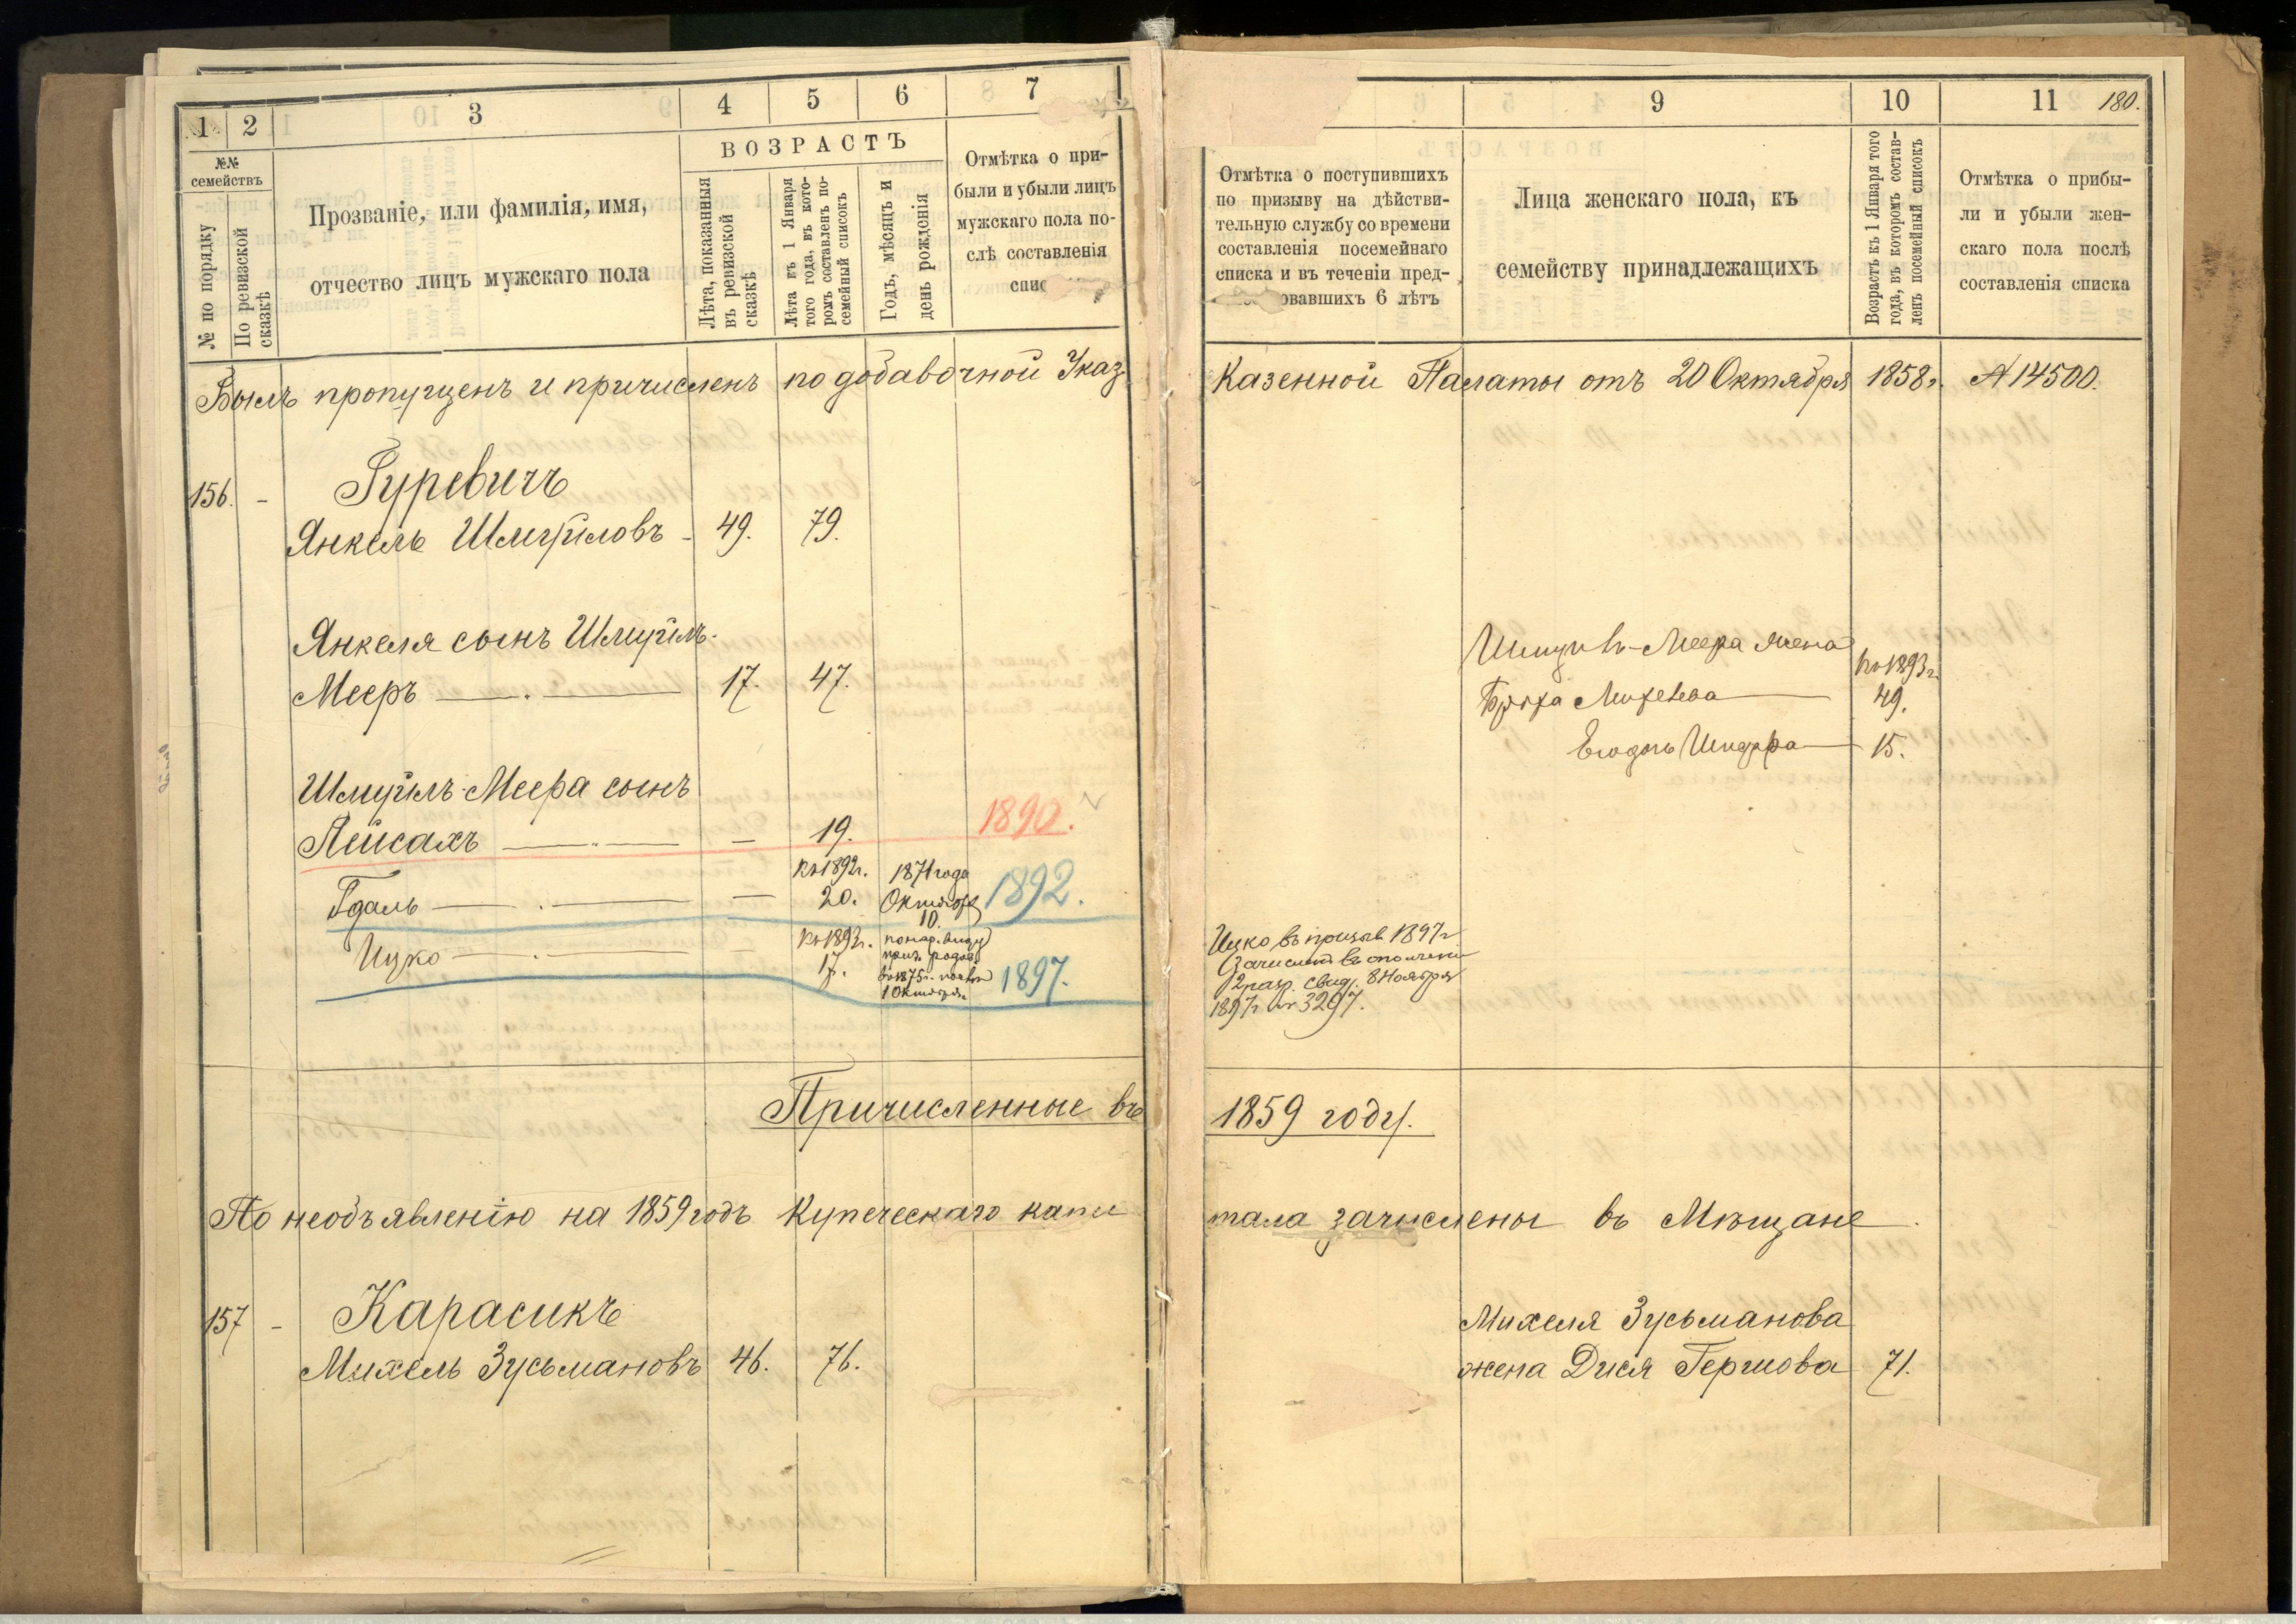 1
2
3
4
5
6
7
№№ семействъ
№ по порядку
По ревизской сказкѣ
Прозваніе, или фамилія, имя,
отчество лицъ мужскаго пола
ВОЗРАСТЪ
Лѣта, показанныя
въ ревизской
сказкѣ
Лѣта къ 1 Января
того года, въ кото-
ромъ составленъ по-
семейный списокъ
Годъ, мѣсяцъ и
день рожденія
Отмѣтка о при-
были и убыли лицъ
мужскаго пола по-
слѣ составленія
Былъ пропущенъ и причисленъ по добавочной Указ.
156. -
Гуревичъ
Янкель Шмуйловъ - 49. 79.
Янкеля сынъ Шмуйлъ-
Мееръ 17. 47.
Шмуйлъ-Меера сынъ
Пейсахъ — 19. 1890.
къ 1892г. 1871 года
Гдаль — 20. Октября 1892.
10.
къ 1893г.
Ицко — 17. 1897.
въ 1875г.
1 Октября
Причисленные въ
По необъявленію на 1859 годъ Купеческаго капи
157 -
Карасикъ
Михель Зусьмановъ 46. 76.
9
10
11
180.
Отмѣтка о поступившихъ
по призыву на дѣйстви-
тельную службу со времени
составленія посемейнаго
списка и въ теченіи пред-
овавшихъ 6 лѣтъ
Лица женскаго пола, къ
семейству принадлежащихъ
Возрастъ къ 1 Января того
года, въ которомъ состав-
ленъ посемейный списокъ
Отмѣтка о прибы-
ли и убыли жен-
скаго пола послѣ
составленія списка
Казенной Палаты отъ 20 Октября 1858г. № 14500.
Меера жена
къ 1893г.
49.
15.
Ицко въ призыв 1897г.
2 разр. свид. 8 Ноября
1897г. № 3297.
1859 году.
тала зачислены въ Мѣщане
Михеля Зусьманова
жена Дися Гершова 71.